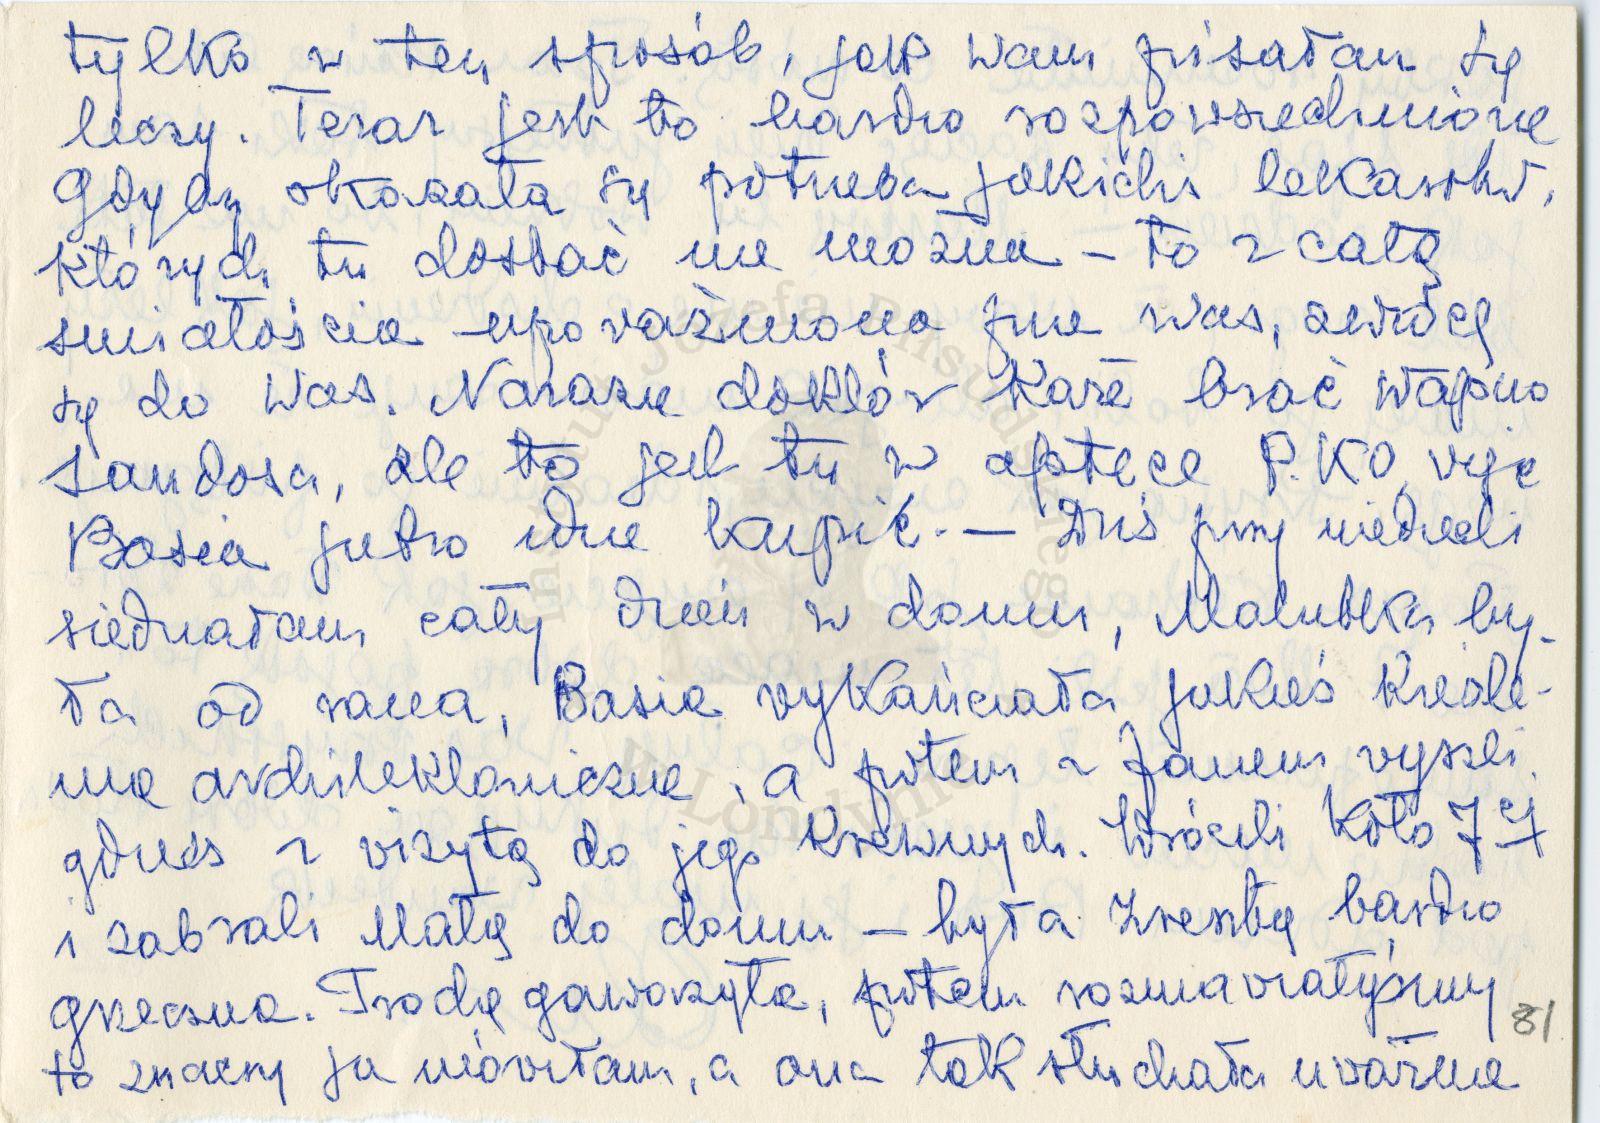 tylko w ten sposób, jak Wam pisałam się
leczy. Teraz jest to bardzo rozpowszechnione
Gdyby okazała się potrzeba jakichś lekarstw,
których tu dostać nie można – to z całą
śmiałością upoważniona prze Was, zwrócę
się do Was. Narazie doktór każe brać wapno
Sandosa, ale to jest tu w aptece P.K.O, więc
Basia jutro idzie kupić. – Dziś przy niedzieli
siedziałam cały dzień w domu, Malutka by-
ła od rana, Basia wykańczała jakieś kreśle-
nia architektoniczne, a potem z Janem wyszli
gdzieś z wizytą do jego krewnych. Wrócili koło 7ej
i zabrali Małą do domu – była zresztą bardzo
grzeczna. Trochę gaworzyła, potem rozmawiałyśmy
to znaczy ja mówiłam, a ona tak słuchała uważnie
81
Instytut Józefa Piłsudskiego
w Londynie